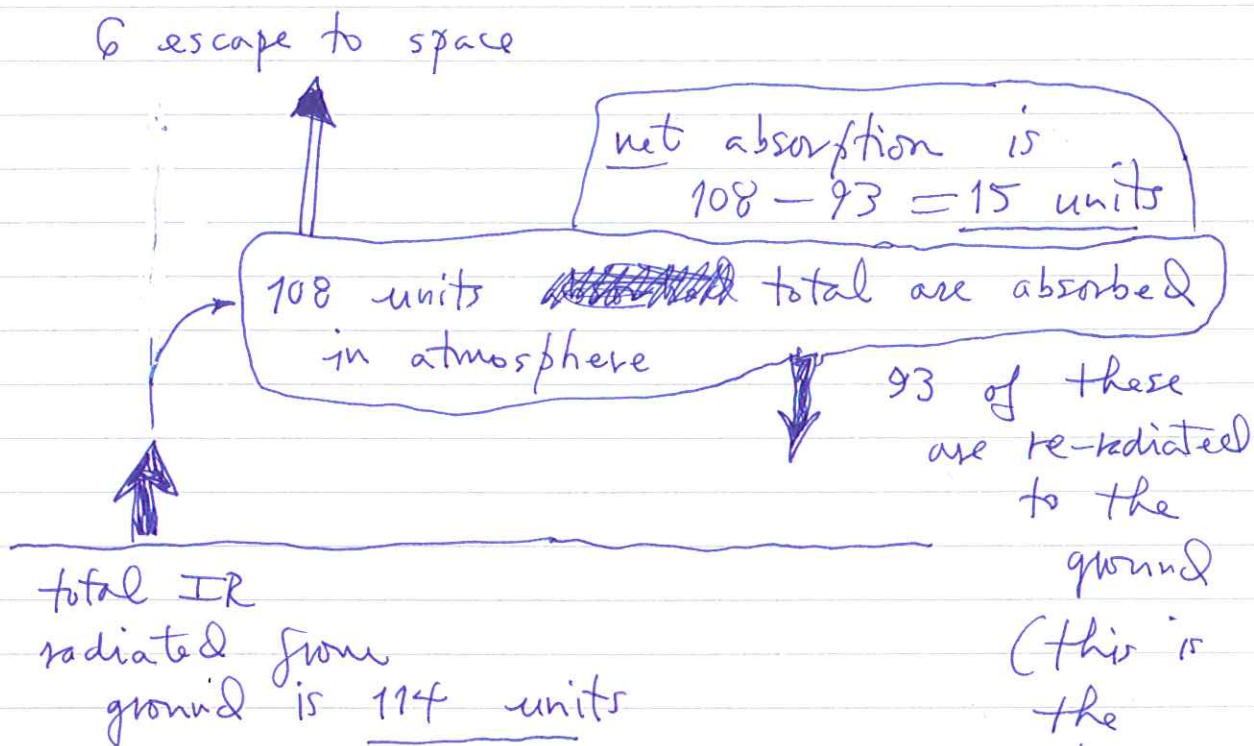 6 escape to space
net absorption is
108 - 93 = 15 units
108 units total are absorbed
in atmosphere
93 of these
are re-radiated
to the
ground
(this is
the
total IR
radiated from
ground is 114 units